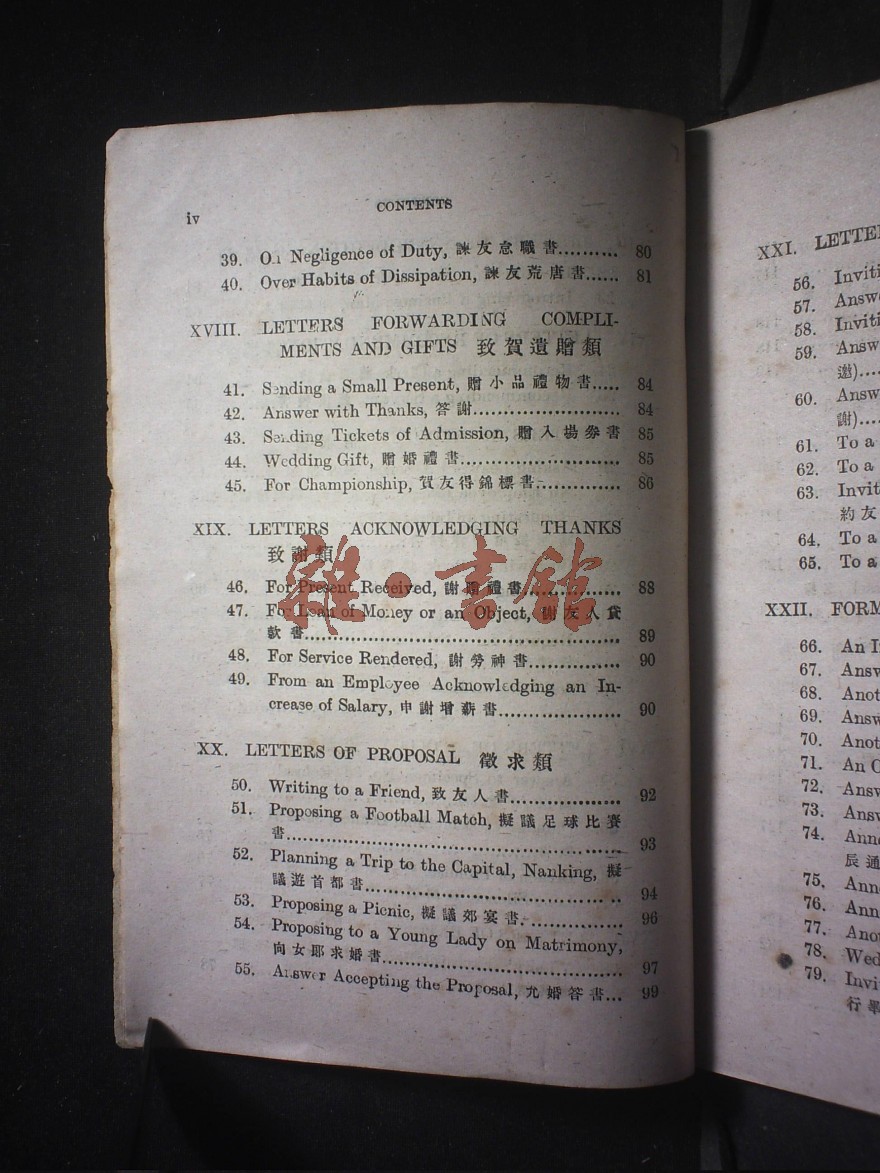 iv
CONTENTS
39. On Negligence of Duty, 諫友怠職書.......... 80
40. Over Habits of Dissipation, 諫友荒唐書...... 81
XVIII. LETTERS FORWARDING COMPLI-
MENTS AND GIFTS 致賀遺贈類
41. Sending a Small Present, 贈小品禮物書..... 84
42. Answer with Thanks, 答謝........................ 84
43. Sending Tickets of Admission, 贈入場券書 85
44. Wedding Gift, 贈婚禮書.......................... 85
45. For Championship, 賀友得錦標書.............. 86
XIX. LETTERS ACKNOWLEDGING THANKS
致謝類
雜·書館
46. For Present Received, 謝贈禮書................ 88
47. For Loan of Money or an Object, 謝友人貸
款書.................................................... 89
48. For Service Rendered, 謝勞神書............... 90
49. From an Employee Acknowledging an In-
crease of Salary, 申謝增薪書.................... 90
XX. LETTERS OF PROPOSAL 徵求類
50. Writing to a Friend, 致友人書.................. 92
51. Proposing a Football Match, 擬議足球比賽
書...................................................... 93
52. Planning a Trip to the Capital, Nanking, 擬
議遊首都書.......................................... 94
53. Proposing a Picnic, 擬議郊宴書................ 96
54. Proposing to a Young Lady on Matrimony,
向女郎求婚書....................................... 97
55. Answer Accepting the Proposal, 允婚答書... 99
XXI. LETTE
56. Inviti
57. Answ
58. Inviti
59. Answ
邀)....
60. Answ
謝)....
61. To a
62. To a
63. Invit
約友
64. To a
65. To a
XXII. FORM
66. An I
67. Answ
68. Anot
69. Answ
70. Anot
71. An
72. Answ
73. Answ
74. Ann
辰通
75. Ann
76. Ann
77. Anot
78. Wed
79. Invi
行畢